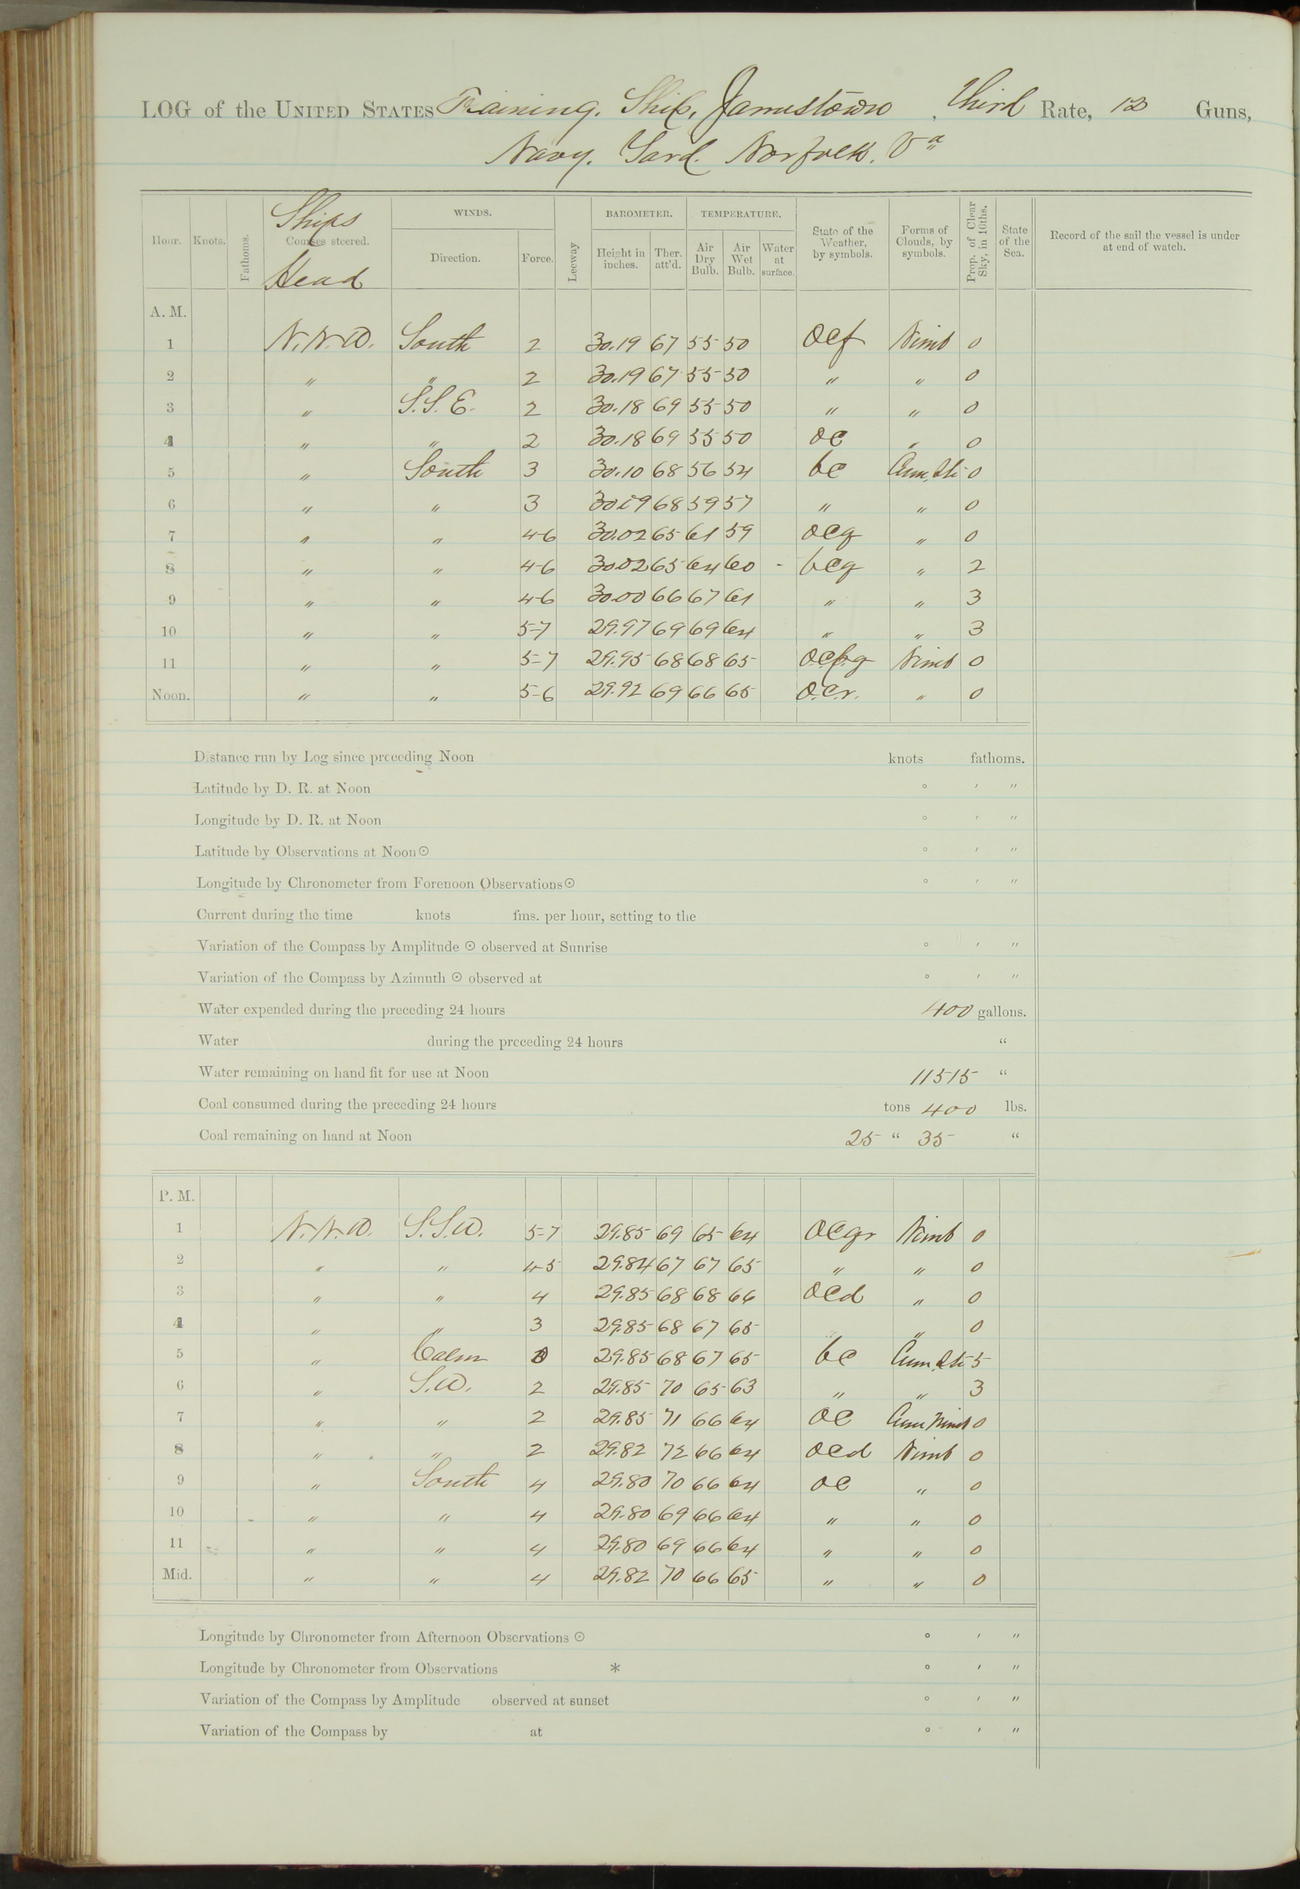 LOG of the UNITED STATES Training Ship, Jamestown, third Rate, 12 Guns,
Navy Yard Norfolk, Va
Hour. Knots. Fathoms. Ships Courses steered. Head WINDS. Direction. Force. Leeway BAROMETER. Height in inches. Ther. att'd. TEMPERATURE. Air Dry Bulb. Air Wet Bulb. Water at surface. State of the Weather, by symbols. Forms of Clouds, by symbols. Prop. of Clear Sky, in 10ths. State of the Sea. Record of the sail the vessel is under at end of watch.
A. M.
1 N.N.W. South 2 30.19 67 55 50 ocf Nimb 0
2 " " 2 30.19 67 55 50 " " 0
3 " S.S.E. 2 30.18 69 55 50 " " 0
4 " " 2 30.18 69 55 50 oc " 0
5 " South 3 30.10 68 56 54 bc Cum. Sti 0
6 " " 3 68 59 57 " " 0
7 " " 4-6 30.02 65 61 59 ocq " 0
8 " " 4-6 30.02 65 64 60 - bcq " 2
9 " " 4-6 30.00 66 67 61 " " 3
10 " " 5-7 29.97 69 69 64 " " 3
11 " " 5-7 29.95 68 68 65 Nimb 0
Noon. " " 5-6 29.92 69 66 65 o.c.r. " 0
Distance run by Log since preceding Noon knots fathoms.
Latitude by D. R. at Noon ° ' "
Longitude by D. R. at Noon ° ' "
Latitude by Observations at Noon ☉ ° ' "
Longitude by Chronometer from Forenoon Observations ☉ ° ' "
Current during the time knots fms. per hour, setting to the
Variation of the Compass by Amplitude ☉ observed at Sunrise ° ' "
Variation of the Compass by Azimuth ☉ observed at ° ' "
Water expended during the preceding 24 hours 400 gallons.
Water during the preceding 24 hours "
Water remaining on hand fit for use at Noon 11515 "
Coal consumed during the preceding 24 hours tons 400 lbs.
Coal remaining on hand at Noon 25 " 35 "
P. M.
1 N.N.W. S.S.W. 5-7 29.85 69 65 64 ocqr Nimb 0
2 " " 4-5 29.84 67 67 65 " " 0
3 " " 4 29.85 68 68 66 ocd " 0
4 " " 3 29.85 68 67 65 " " 0
5 " Calm 0 29.85 68 67 65 bc Cum. Sti 5
6 " S.W. 2 29.85 70 65 63 " " 3
7 " " 2 29.85 71 66 64 oc Cum Nimb 0
8 " " 2 29.82 72 66 64 ocd Nimb 0
9 " South 4 29.80 70 66 64 oc " 0
10 " " 4 29.80 69 66 64 " " 0
11 " " 4 29.80 69 66 64 " " 0
Mid. " " 4 29.82 70 66 65 " " 0
Longitude by Chronometer from Afternoon Observations ☉ ° ' "
Longitude by Chronometer from Observations * ° ' "
Variation of the Compass by Amplitude observed at sunset ° ' "
Variation of the Compass by at ° ' "